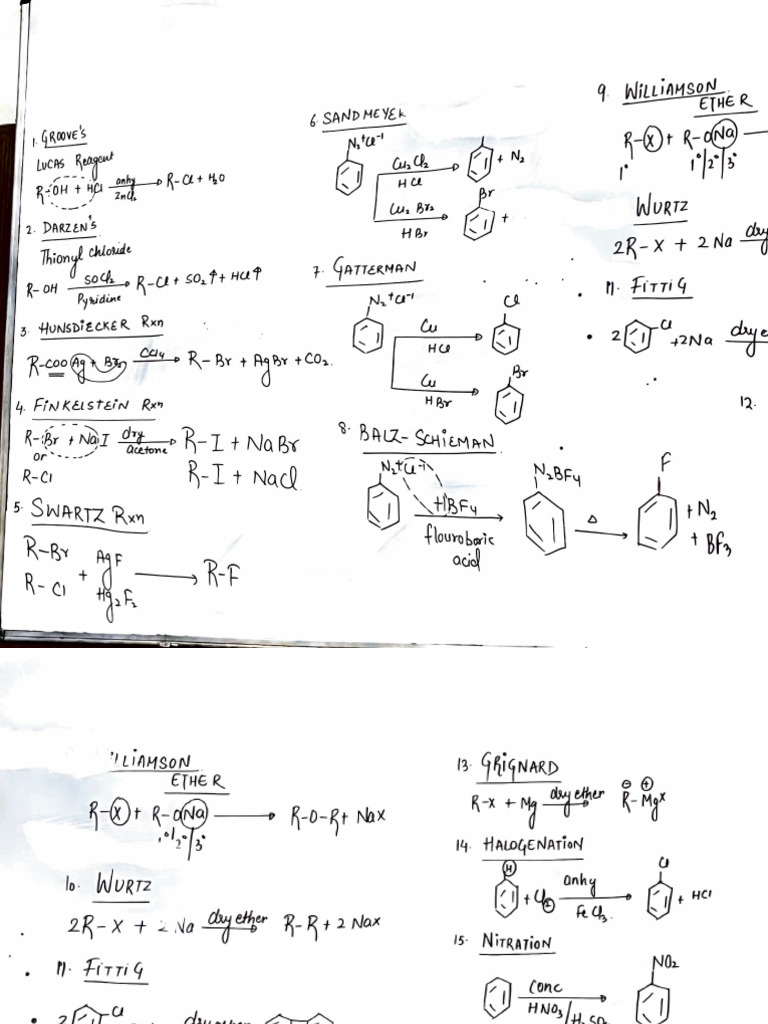 1. GROOVE'S
LUCAS Reagent
R-OH + HCl anhy ZnCl2 → R-Cl + H2O
2. DARZEN'S
Thionyl chloride
R-OH SOCl2 Pyridine → R-Cl + SO2↑ + HCl↑
3. HUNSDIECKER Rxn
R-COO Ag + Br2 CCl4 → R-Br + AgBr + CO2.
4. FINKELSTEIN Rxn
R-Br + NaI dry acetone → R-I + NaBr
or
R-Cl R-I + NaCl
5. SWARTZ Rxn
R-Br AgF
+ → R-F
R-Cl Hg2F2
6. SANDMEYER
N2+Cl-1
Cu2Cl2 HCl → + N2
Cu2Br2 HBr → Br +
7. GATTERMAN
N2+Cl-1
Cu HCl → Cl
Cu HBr → Br
8. BALZ-SCHIEMAN
N2+Cl-1 + HBF4 flouroboric acid → N2BF4 Δ → F + N2 + BF3
9. WILLIAMSON
ETHER
R-X + R-ONa
1° 1°/2°/3°
WURTZ
2R-X + 2Na dry
11. FITTIG
2 Cl + 2Na dry e
12.
ILIAMSON
ETHER
R-X + R-ONa → R-O-R + Nax
1°/2°/3°
10. WURTZ
2R-X + 2Na dry ether → R-R + 2 Nax
11. FITTIG
2 Cl dry ether
13. GRIGNARD
R-X + Mg dry ether → R⊖-Mg⊕x
14. HALOGENATION
H + Cl2 anhy FeCl3. → Cl + HCl
15. NITRATION
Conc HNO3/H2SO → NO2